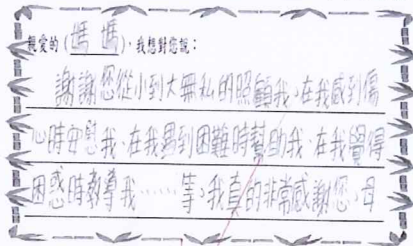 親愛的(媽媽)，我想對您說：
謝謝您從小到大無私的照顧我，在我感到傷
心時安慰我、在我遇到困難時幫助我、在我覺得
困惑時教導我……等，我真的非常感謝您，母